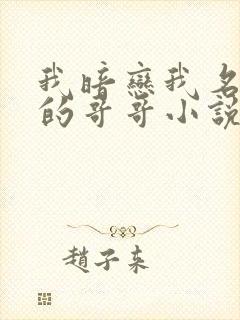 我暗戀我名
的哥哥小說
趙子來